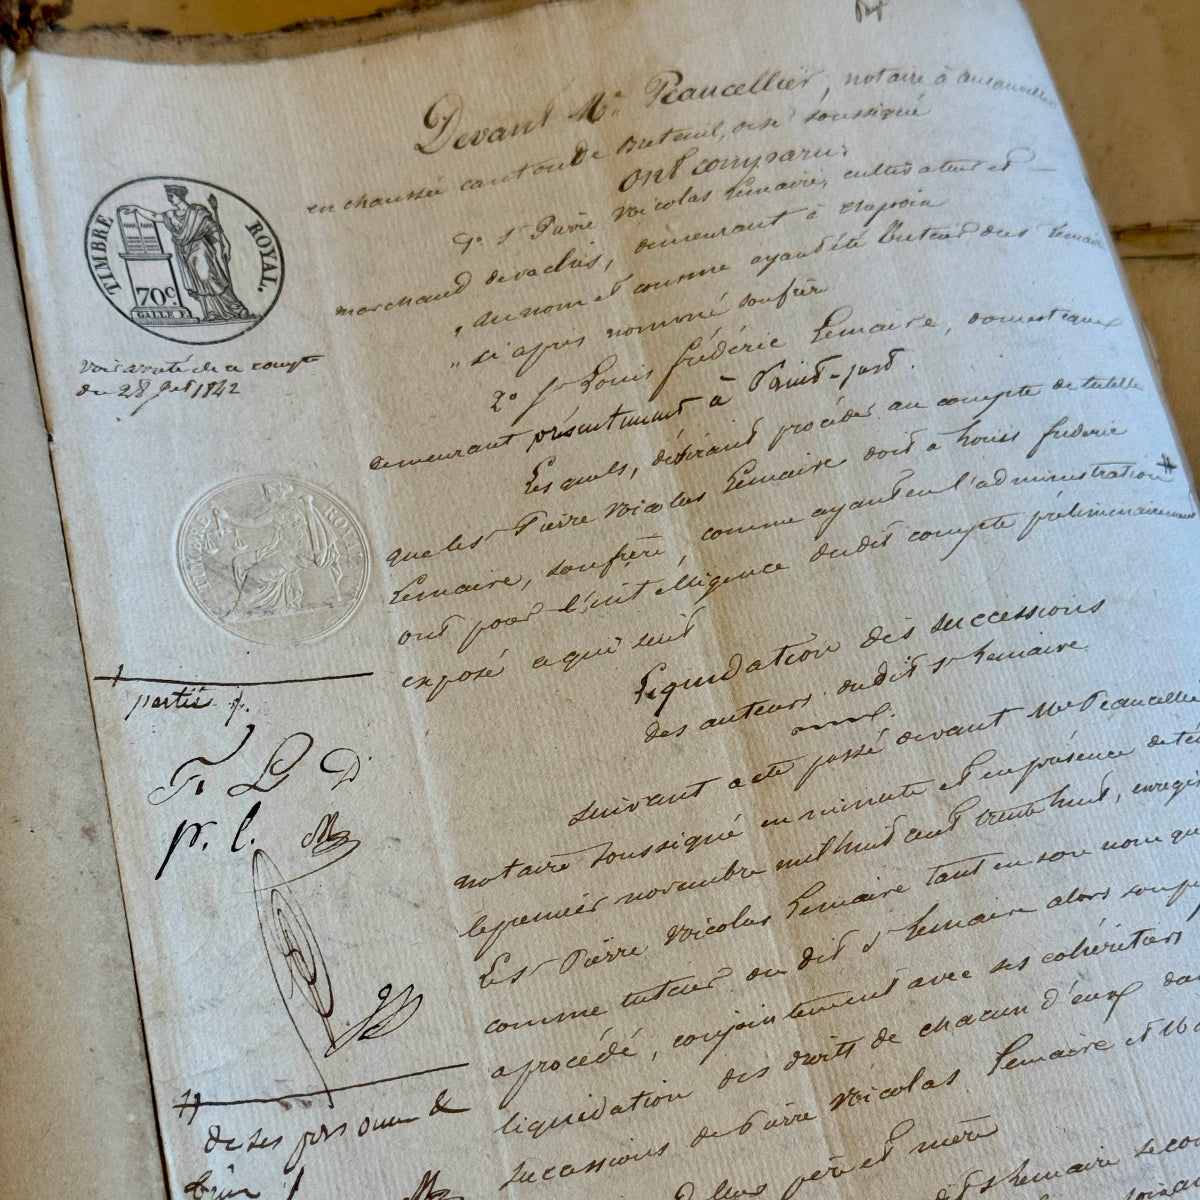 Devant Me Peaucellier, notaire à Ansauvillers
en chaussée canton de Breteuil, oise soussigné
ont comparu:
1° Sr Pierre Nicolas Lemaire, cultivateur et
marchand de vaches, demeurant à
" au nom et comme ayant été tuteur du sr Lemaire
" ci après nommé son frère
2° Sr Louis frédéric Lemaire, domestique
demeurant présentement à Saint-just.
Lesquels, désirant procéder au compte de tutelle
que le sr Pierre Nicolas Lemaire doit à Louis frédéric
Lemaire, son frère, comme ayant eu l'administration #
ont pour l'intelligence dudit compte préliminairement
exposé ce qui suit
Liquidation des successions
des auteurs dudit sr Lemaire
suivant acte passé devant Me Peaucellier
notaire soussigné en minute et en présence de té
le premier novembre mil huit cent trente huit, enregis
Le sr Pierre Nicolas Lemaire tant en son nom que
comme tuteur du dit sr Lemaire alors son pu
a procédé, conjointement avec ses cohéritiers
liquidation des droits de chacun d'eux dans
successions de Pierre Nicolas Lemaire et Ma
leurs père et mère
sr Lemaire
TIMBRE ROYAL.
70c.
voir arrêté de ce compte
du 28 1842
TIMBRE ROYAL
partie
F. L D
p. l.
#
de ses personne &
biens